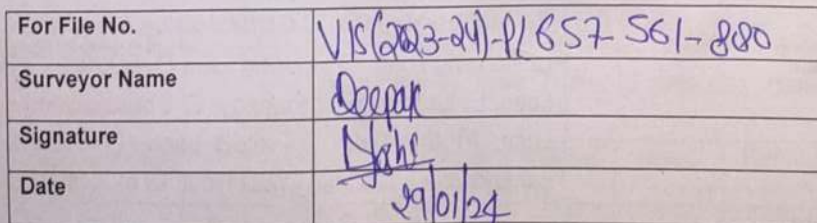 For File No. VIS(2023-24)-PL657-561-880
Surveyor Name Deepak
Signature
Date 29/01/24